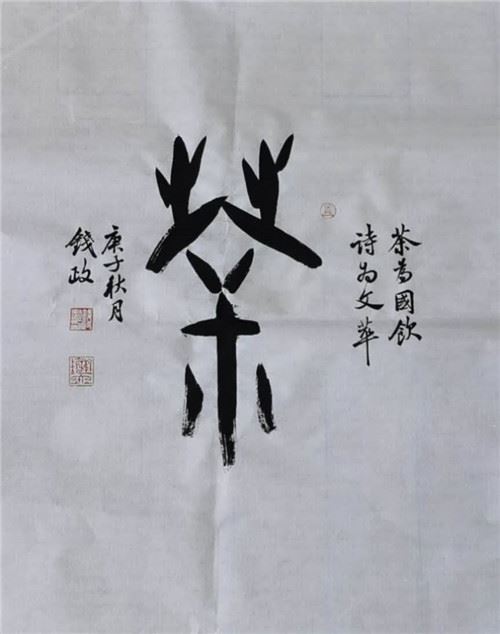 茶為國飲
詩為文華
茶
庚子秋月
錢政